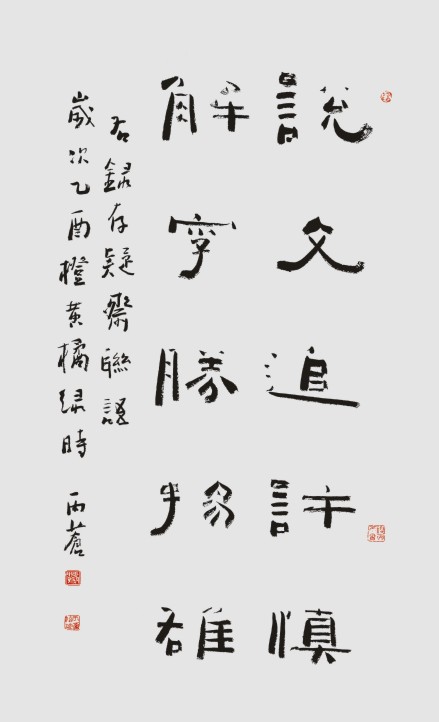 說文追許慎
解字勝揚雄
右録存疑齋聯語
歲次乙酉橙黄橘緑時 丙蒼